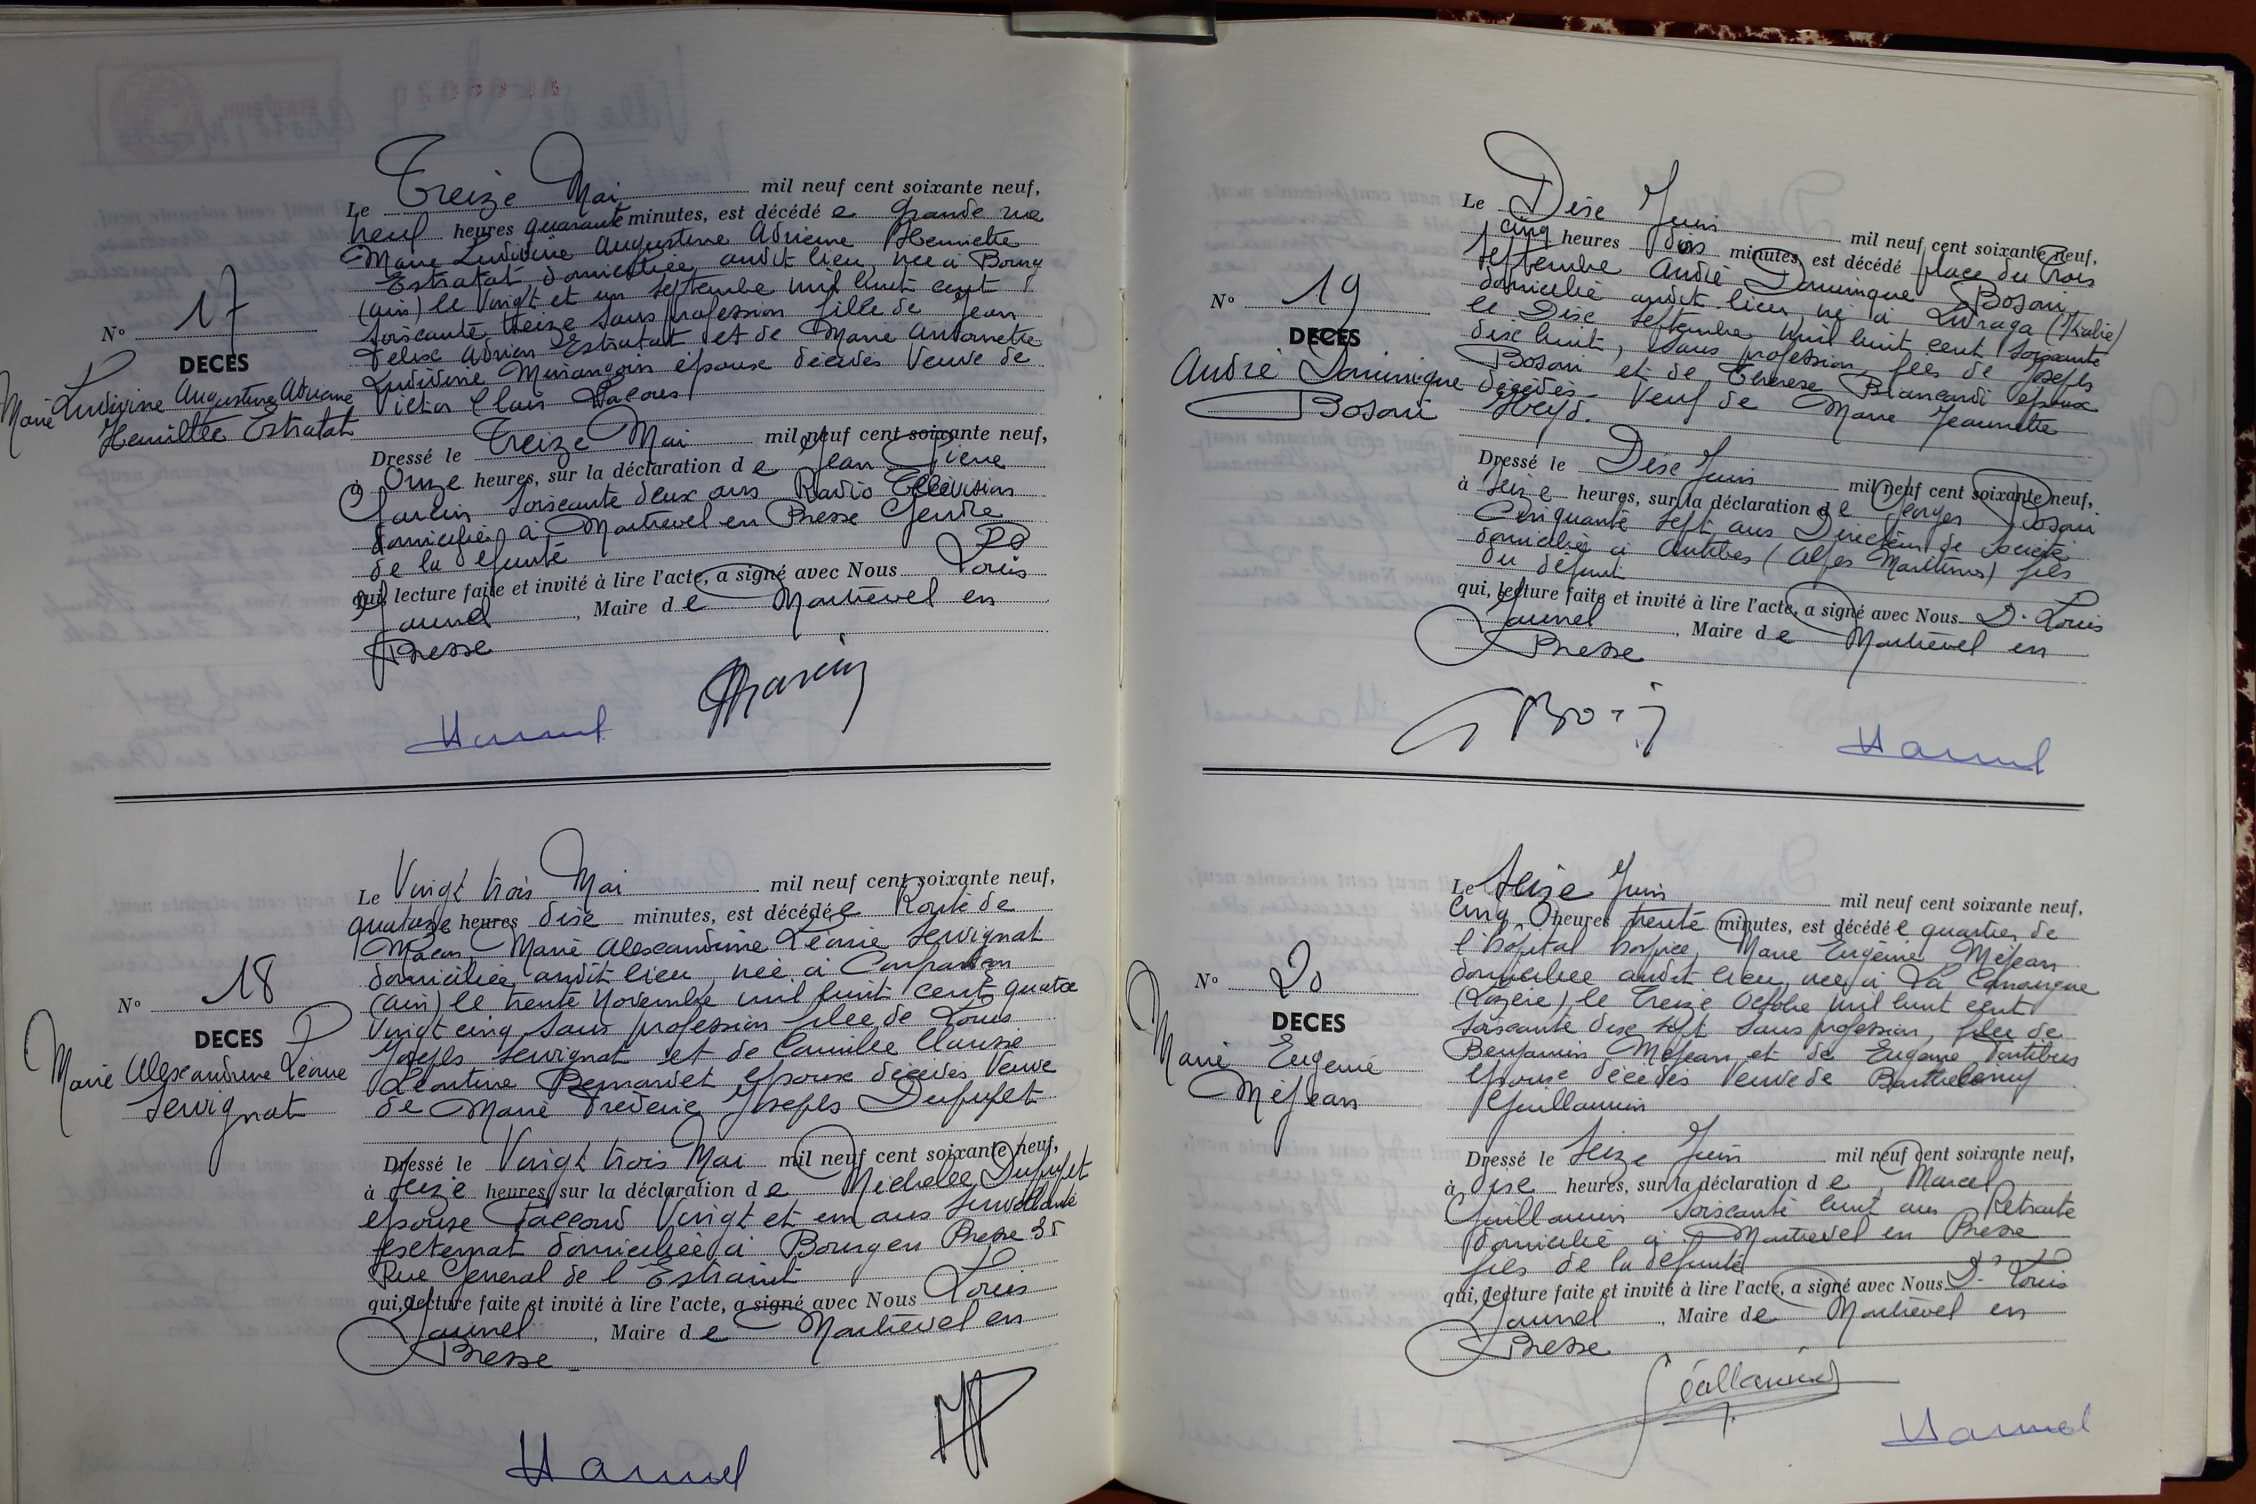 N° 17
DECES
Marie Ludivine Augustine Adrienne
Henriette Estratat
Le Treize Mai mil neuf cent soixante neuf,
neuf heures quarante minutes, est décédé e Grande rue
Marie Ludivine Augustine Adrienne Henriette
Estratat, domiciliée audit lieu, née à Bourg
(ain) le vingt et un septembre mil huit cent
soixante treize sans profession fille de Jean
Felix Adrien Estratat et de Marie Antoinette
Ludivine époux décédés Veuve de
Victor Clair
Dressé le Treize Mai mil neuf cent soixante neuf,
à Onze heures, sur la déclaration d e Jean Pierre
soixante deux ans Radio Télévision
domicilié à Montrevel en Bresse Gendre
de la défunte
qui, lecture faite et invité à lire l'acte, a signé avec Nous Louis
Jaunel, Maire d e Montrevel en
Bresse
N° 18
DECES
Marie Alexandrine Léonie
Servignat
Le Vingt trois Mai mil neuf cent soixante neuf,
quatorze heures dix minutes, est décédé e Route de
Macon, Marie Alexandrine Léonie Servignat
domiciliée audit lieu, née à Confrançon
(ain) le trente Novembre mil huit cent quatre
Vingt cinq sans profession fille de Louis
Joseph Servignat et de Camille Clarisse
Léontine Bernardet époux décédés Veuve
de Marie Frederic Joseph Dupuyet
Dressé le Vingt trois Mai mil neuf cent soixante neuf,
à seize heures, sur la déclaration d e Michelle Dupuyet
épouse Faccoud Vingt et un ans Surveillante
externat domiciliée à Bourg en Bresse 35
Rue General de l'Estraint
qui, lecture faite et invité à lire l'acte, a signé avec Nous Louis
Jaunel, Maire d e Montrevel en
Bresse
N° 19
DECES
André Dominique
Bosoni
Le Dix Juin mil neuf cent soixante neuf,
cinq heures dix minutes, est décédé place du Trois
Septembre André Dominique Bosoni
domicilié audit lieu, né à Livraga (Italie)
le Dix Septembre mil huit cent soixante
dix huit, sans profession, fils de Joseph
Bosoni et de Therese Biancardi époux
décédés - Veuf de Marie Jeannette
Heyd.
Dressé le Dix Juin mil neuf cent soixante neuf,
à seize heures, sur la déclaration d e Georges Bosoni
Cinquante sept ans Directeur de Société
domicilié à Antibes (Alpes Maritimes) fils
du défunt
qui, lecture faite et invité à lire l'acte, a signé avec Nous D. Louis
Jaunel, Maire d e Montrevel en
Bresse
N° 20
DECES
Marie Eugenie
Méjean
Le Seize Juin mil neuf cent soixante neuf,
cinq heures trente minutes, est décédé e quartier de
l'hôpital hospice, Marie Eugénie Méjean
domiciliée audit lieu, née à La Canourgue
(Lozère) le Treize Octobre mil huit cent
soixante dix sept sans profession, fille de
Benjamin Méjean et de Eugenie
époux décédés Veuve de Barthelemy
Guillaumin
Dressé le Seize Juin mil neuf cent soixante neuf,
à dix heures, sur la déclaration d e Marcel
Guillaumin Soixante huit ans Retraité
domicilié à Montrevel en Bresse
fils de la défunte
qui, lecture faite et invité à lire l'acte, a signé avec Nous D. Louis
Jaunel, Maire de Montrevel en
Bresse